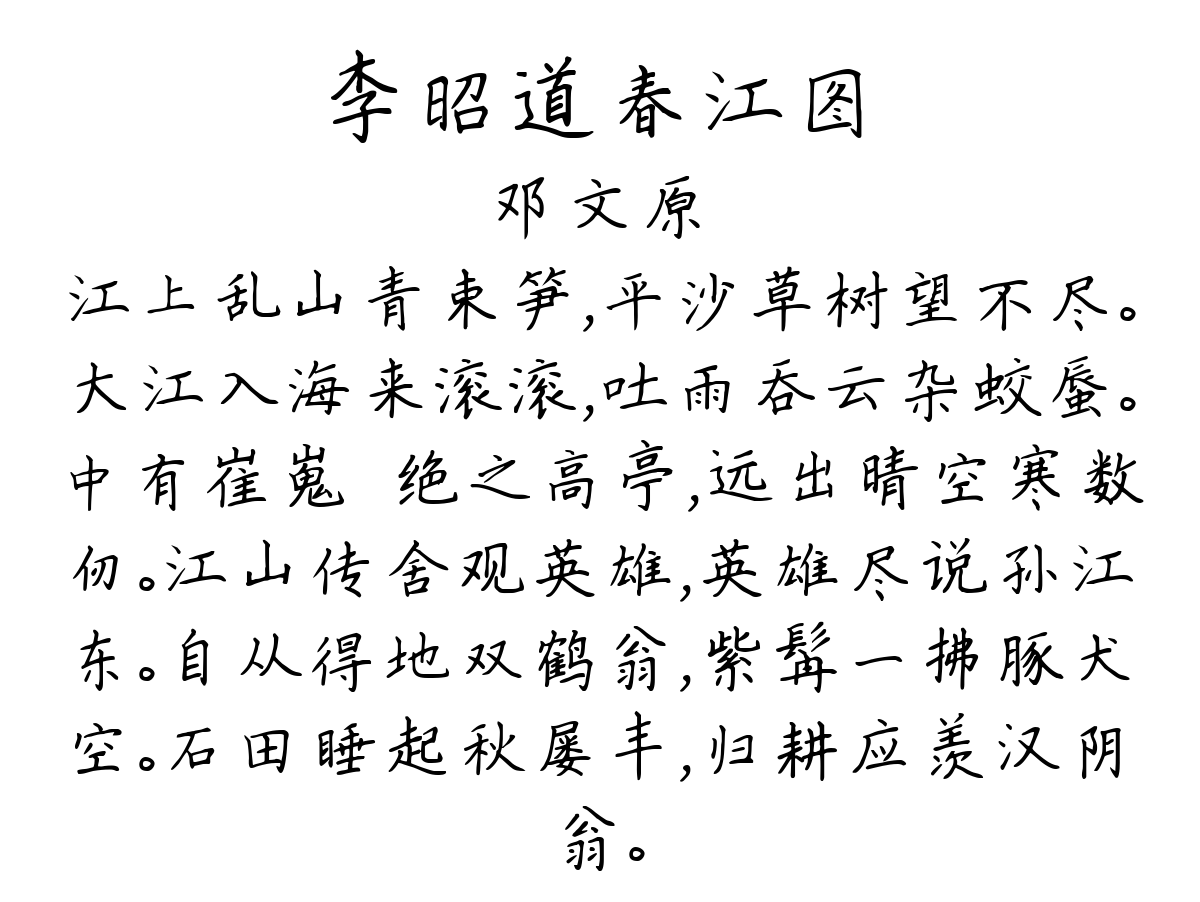 李昭道春江图
邓文原
江上乱山青束笋,平沙草树望不尽。
大江入海来滚滚,吐雨吞云杂蛟蜃。
中有崔嵬 绝之高亭,远出晴空寒数
仞。江山传舍观英雄,英雄尽说孙江
东。自从得地双鹤翁,紫髯一拂豚犬
空。石田睡起秋屡丰,归耕应羡汉阴
翁。